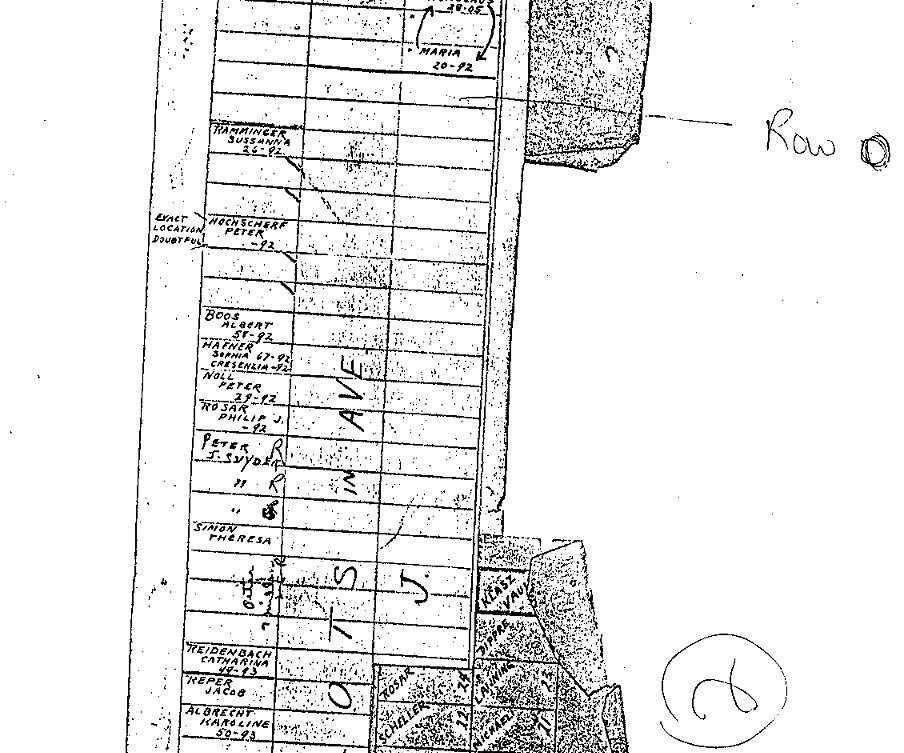 28-05
MARIA
20-92
Row O
RAMMINGER
SUSSANNA
26-92
EXACT
LOCATION
DOUBTFUL
HOCHSCHERF
PETER
-92
BOOS
ALBERT
58-92
HAFNER
SOPHIA 67-92
CRESENZIA-92
NOLL
PETER
29-92
ROSAR
PHILIP J.
-92
PETER R
J. SNYDER
" R
"
SIMON
THERESA
IN AVE
OTS
J.
REIDENBACH
CATHARINA
49-93
REPER
JACOB
ALBRECHT
KAROLINE
50-93
VAUL
ROSAR 14
SCHELLER 12
MICHAEL 11
2